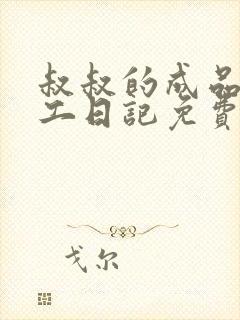 叔叔的成品
工日記免費
戈尔